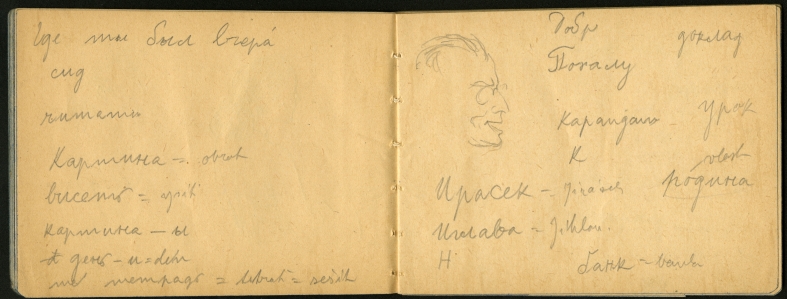 Где ты был вчера́
сид
читать
Картина = obraz
висеть = viseti
картина – ы
день – и = den
тетрадь = sešit
Добр
доклад
Покажу
карандаш
урок
К
vlast
Ирасек = Jirásek
ро́дина
Иглава = Jihlava
Н
банк = banka